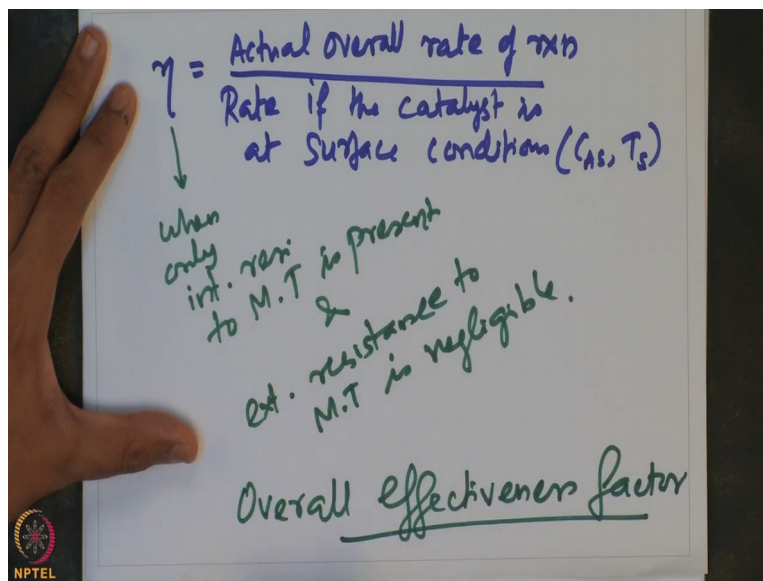 η = Actual overall rate of rxn
Rate if the catalyst is
at surface conditions (CAS, TS)
when
only
int. resi
to M.T is present
&
ext. resistance to
M.T is negligible.
Overall effectiveness factor
NPTEL